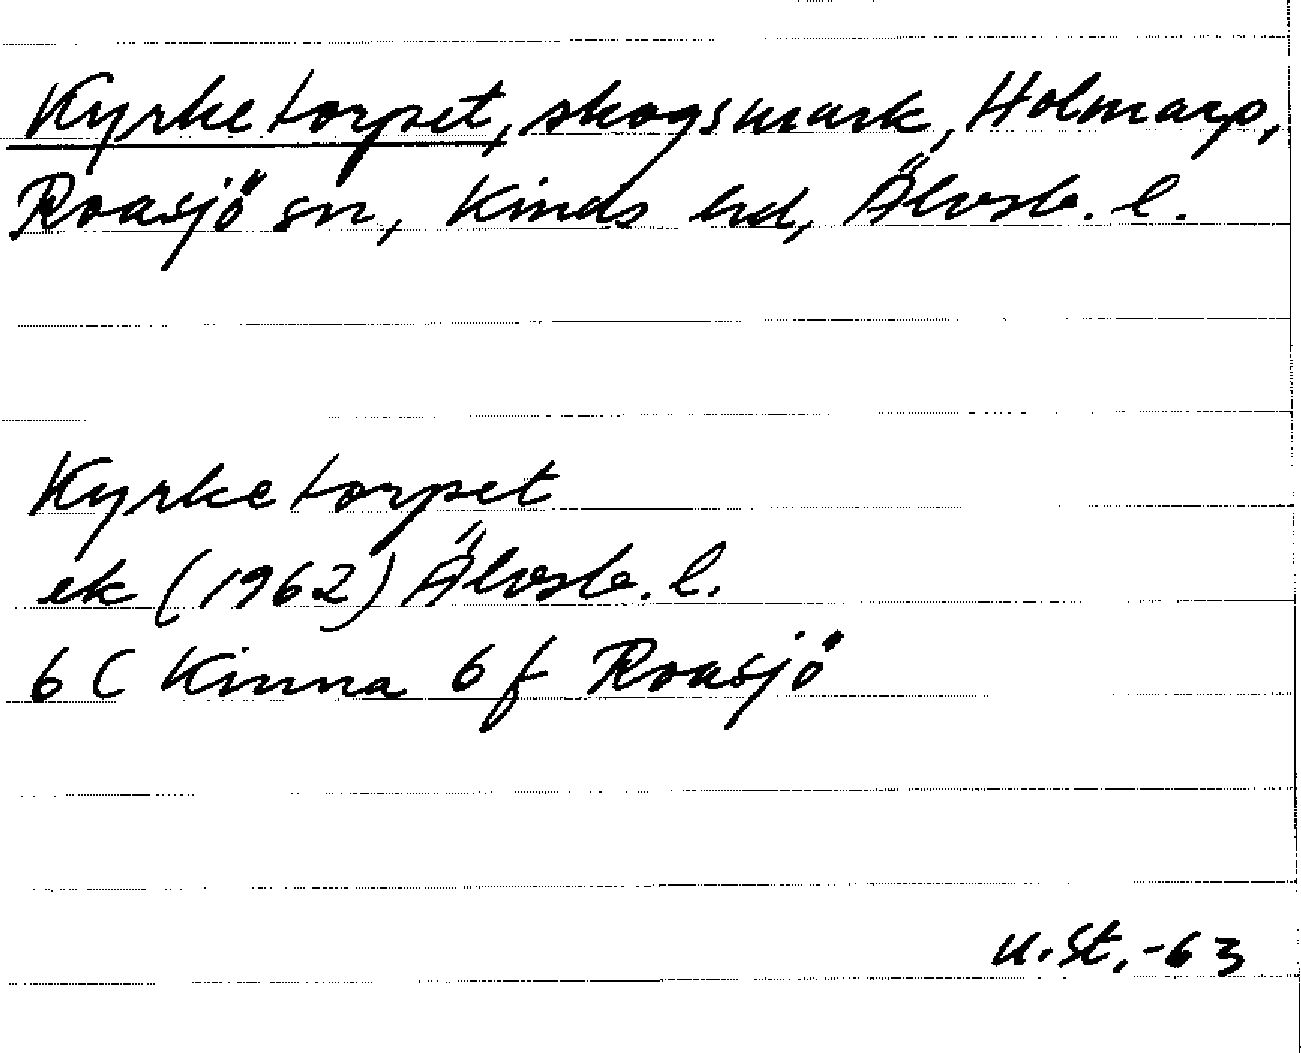 Kyrketorpet, skogsmark, Holmarp,
Roasjö sn, Kinds hd, Älvsb. l.
Kyrketorpet
ek (1962) Älvsb. l.
6 C Kinna 6 f Roasjö
U. St. -63